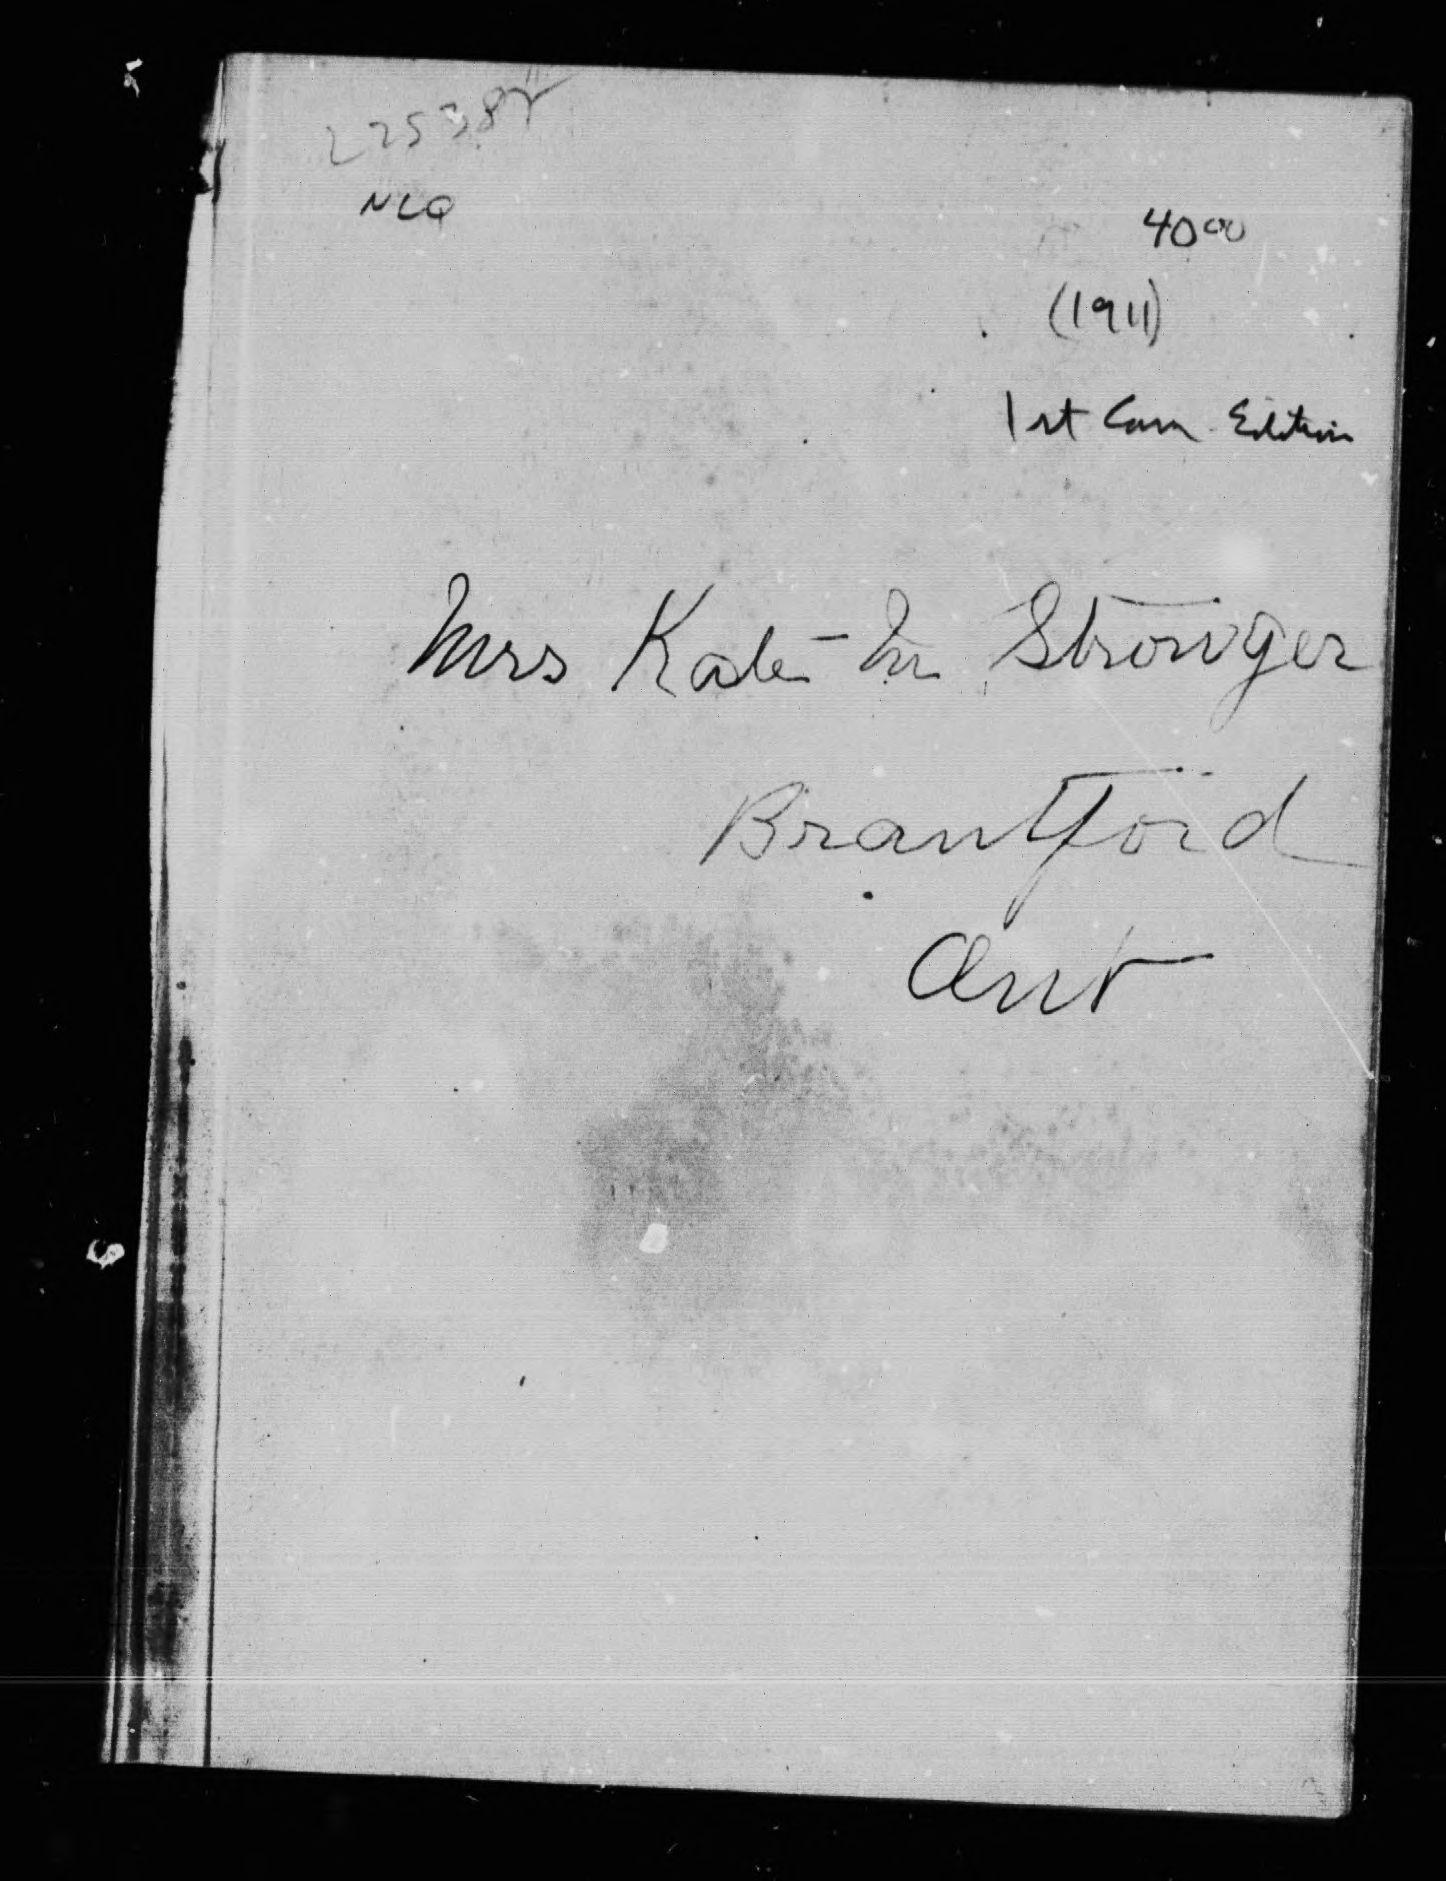 NLQ
40 00
(1911)
1st Can Edition
Mrs Kate M Strowger
Brantford
Ont